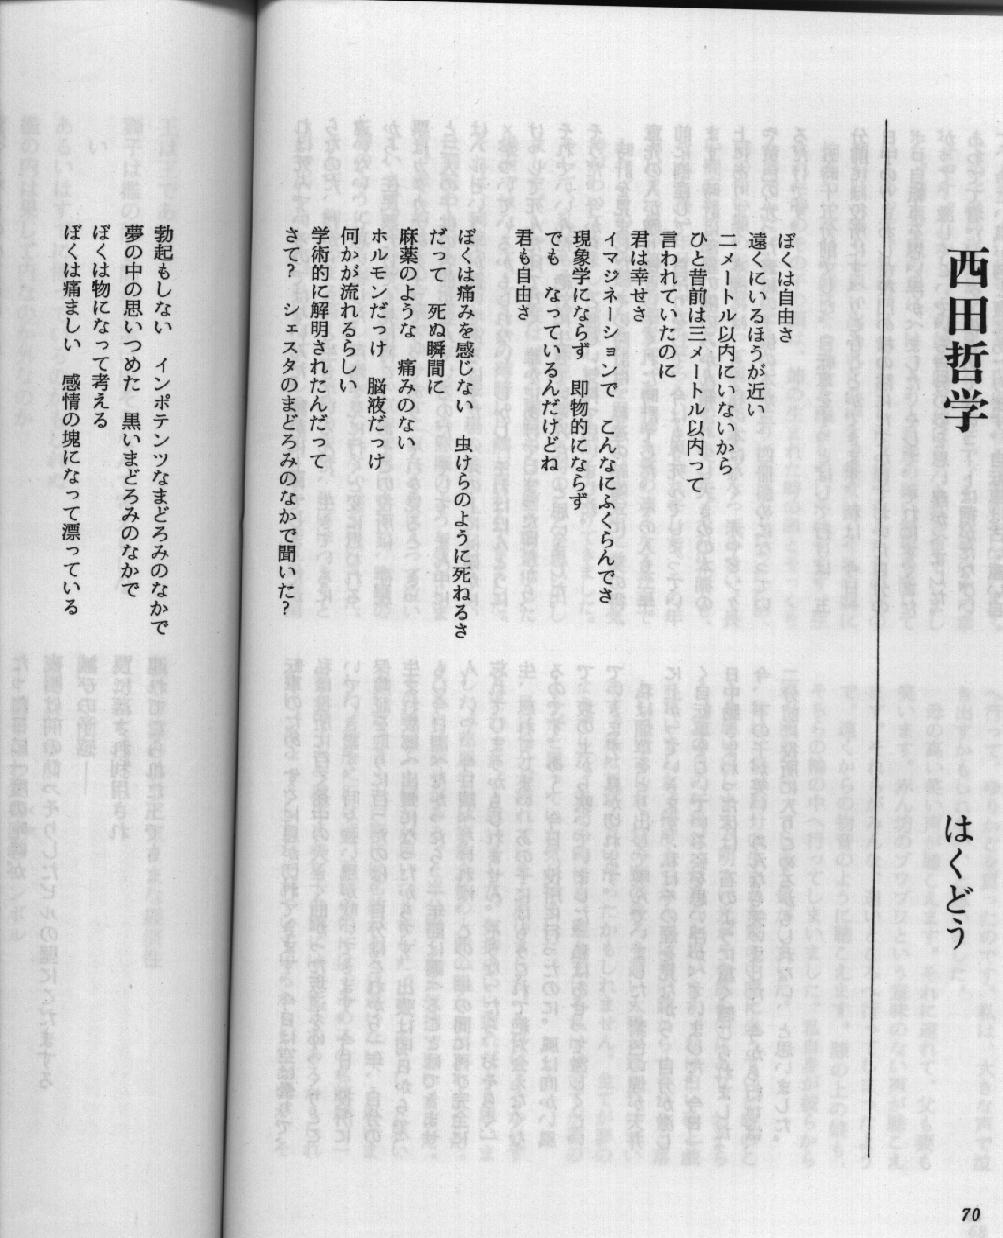 西田哲学
はくどう
ぼくは自由さ
遠くにいるほうが近い
二メートル以内にいないから
ひと昔前は三メートル以内って
言われていたのに
君は幸せさ
イマジネーションで　こんなにふくらんでさ
現象学にならず　即物的にならず
でも　なっているんだけどね
君も自由さ
ぼくは痛みを感じない　虫けらのように死ねるさ
だって　死ぬ瞬間に
麻薬のような　痛みのない
ホルモンだっけ　脳液だっけ
何かが流れるらしい
学術的に解明されたんだって
さて？　シェスタのまどろみのなかで聞いた？
勃起もしない　インポテンツなまどろみのなかで
夢の中の思いつめた　黒いまどろみのなかで
ぼくは物になって考える
ぼくは痛ましい　感情の塊になって漂っている
70